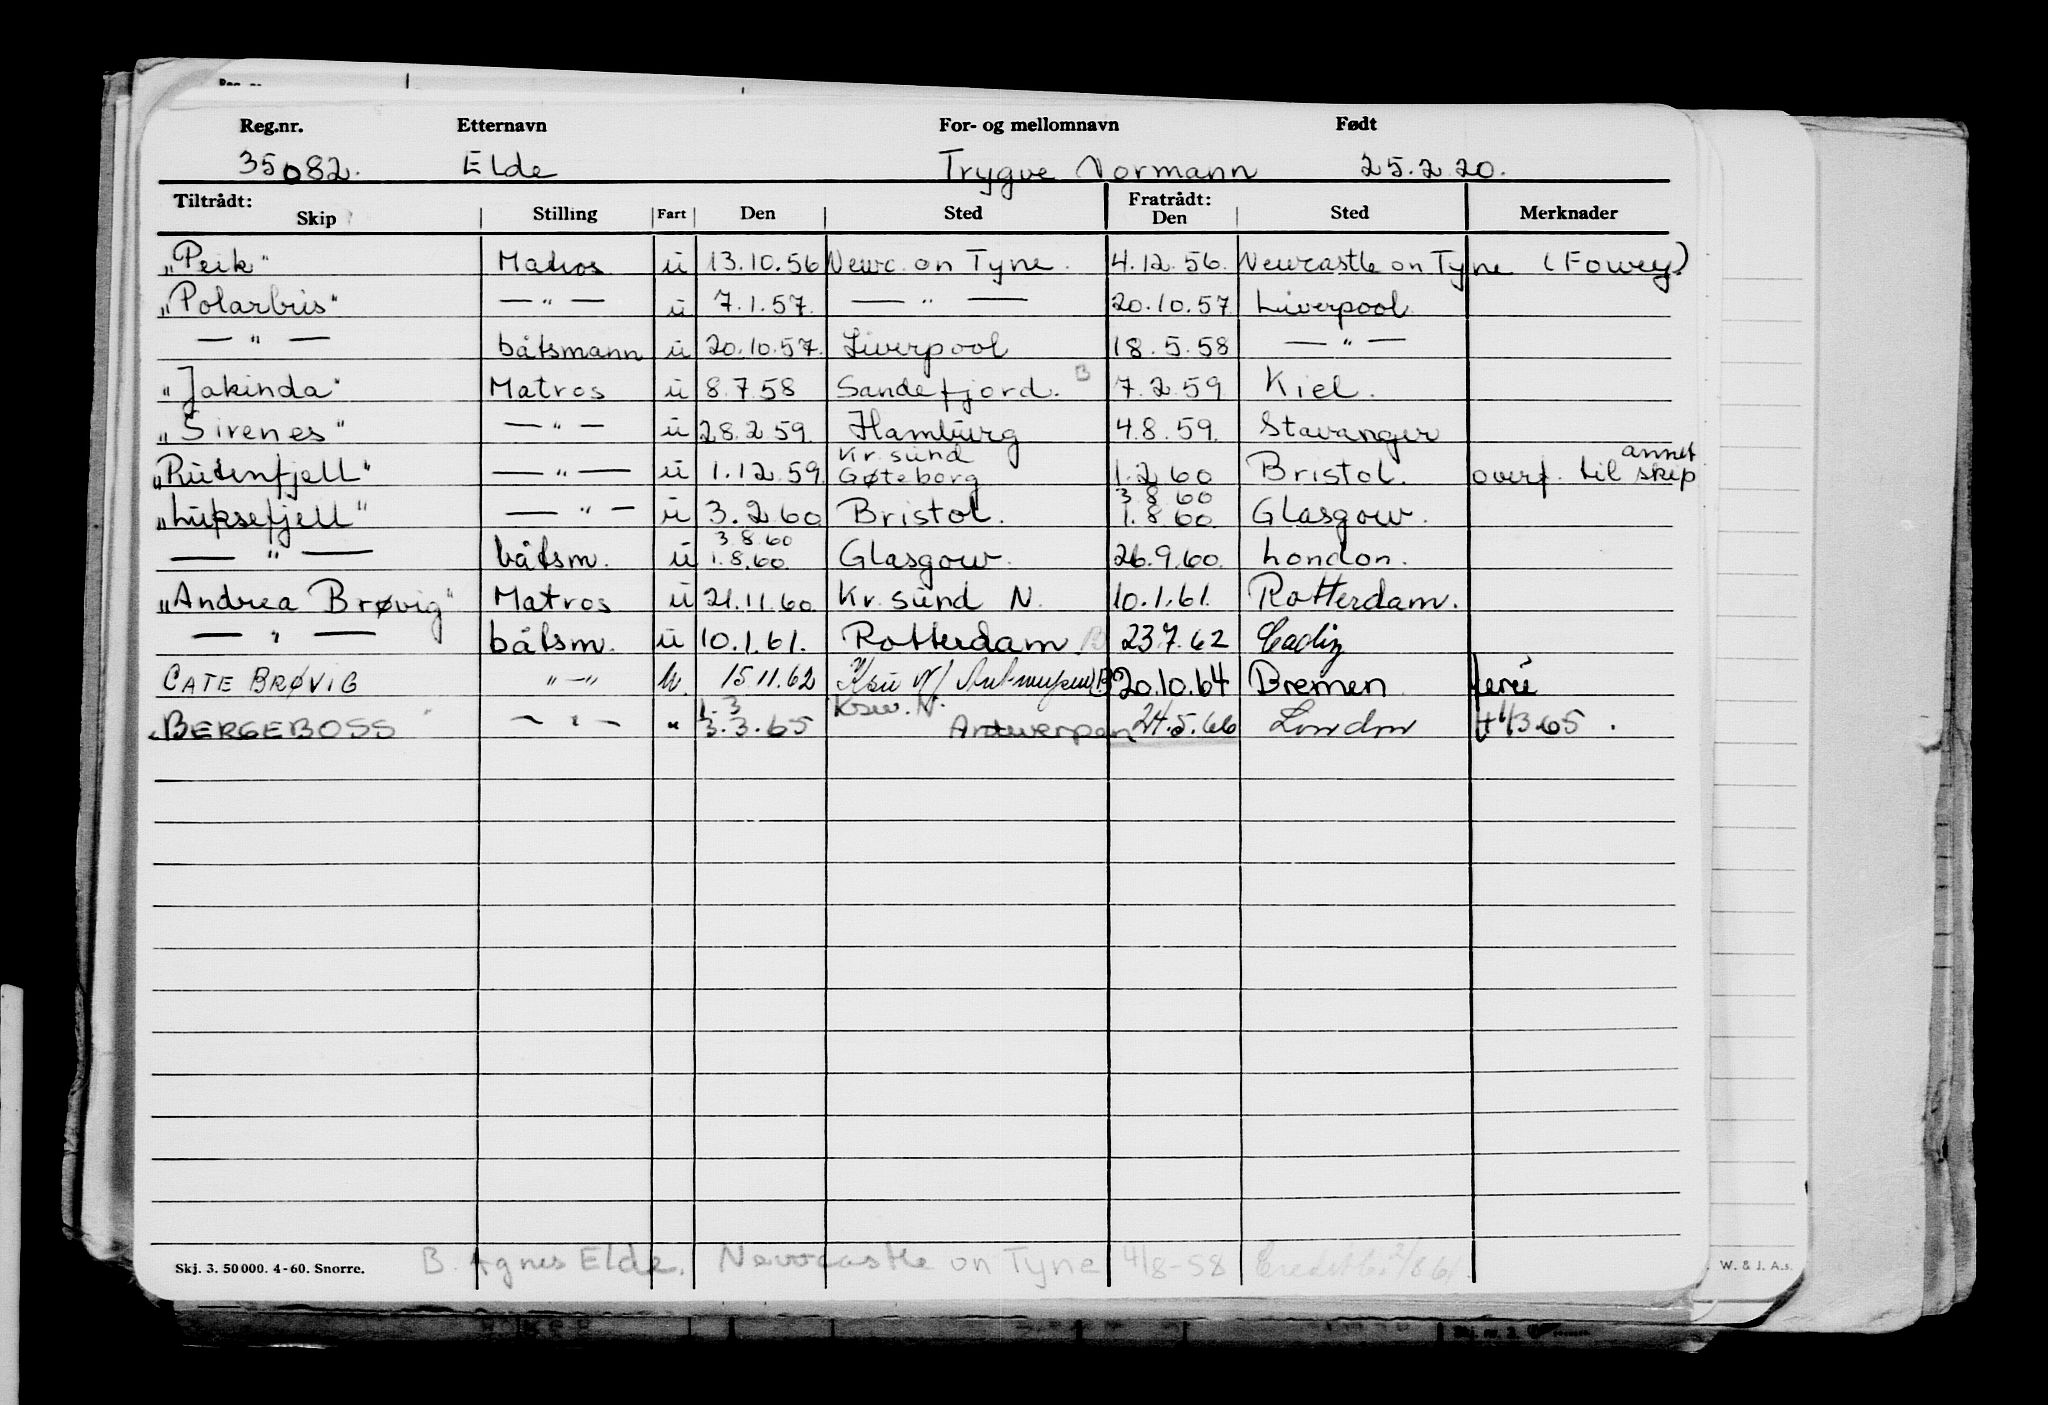 Reg.nr. Etternavn For- og mellomnavn Født
35082. Elde Trygve Normann 25.2.20.
Tiltrådt: Skip Stilling Fart Den Sted Fratrådt: Den Sted Merknader
"Peik" Matros u 13.10.56 Newc. on Tyne. 4.12.56. Newcastle on Tyne (Fowey)
"Polarbris" — " — u 7.1.57. — " — 20.10.57 Liverpool
— " — båtsmann u 20.10.57. Liverpool 18.5.58 — " —
"Jakinda" Matros u 8.7.58 Sandefjord. B 7.2.59 Kiel.
"Sirenes" — " — u 28.2.59. Hamburg 4.8.59. Stavanger
Kr. sund annet
"Rutenfjell" — " — u 1.12.59. Gøteborg 1.2.60 Bristol. overf. til skip
3.8.60
"Luksefjell" — " — u 3.2.60 Bristol. 1.8.60 Glasgow.
3.8.60
— " — båtsm. u 1.8.60. Glasgow. 26.9.60. London.
"Andrea Brøvig" Matros u 21.11.60. Kr. sund N. 10.1.61. Rotterdam.
— " — båtsm. u 10.1.61. Rotterdam. B 23.7.62 Cadiz
CATE BRØVIG " — " u. 15.11.62 Ksu N/ Antwerpen B 20.10.64 Bremen ferie
1.3 Ksu. N.
"BERGEBOSS" — " — " 3.3.65 Antwerpen 24.5.66 London 1/3 65.
Skj. 3. 50000. 4-60. Snorre. B. Agnes Elde. Newcastle on Tyne 4/8-58
W. & J. A.s.